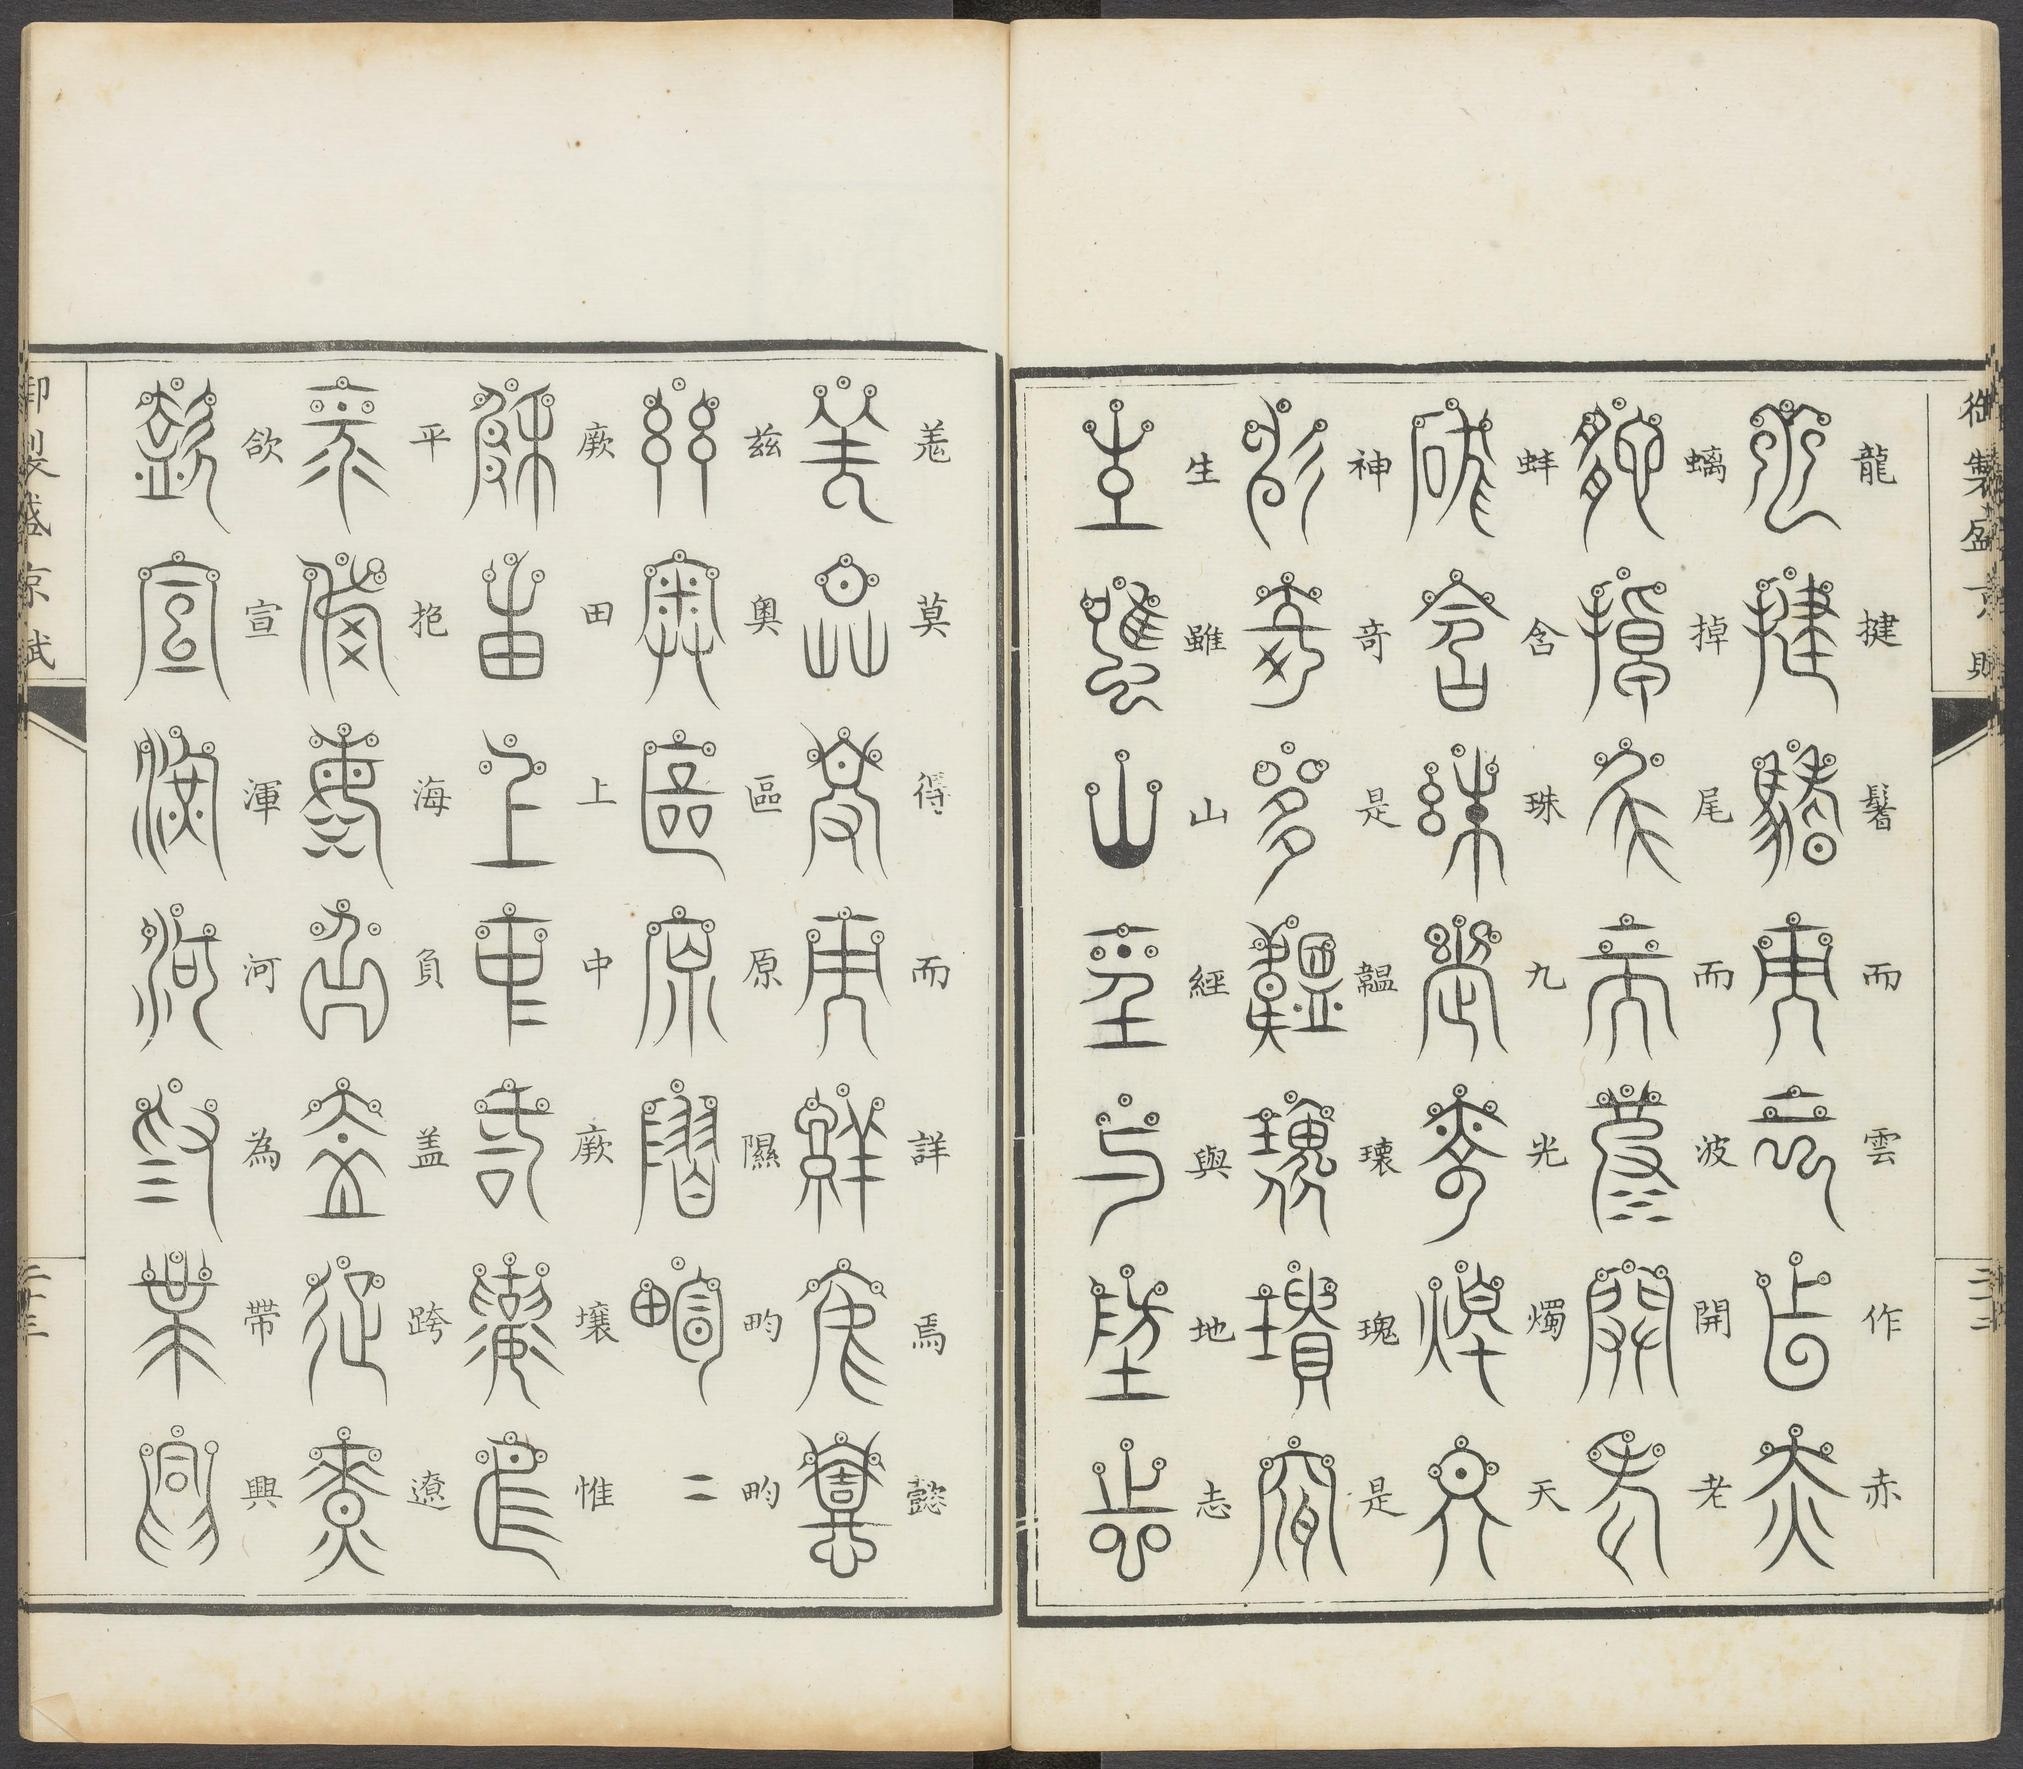 御製盛京賦
二十二
龍揵鬐而雲作赤
螭掉尾而波開老
蚌含珠九光燭天
神奇是韞瓌瑰是
生雖山經與地志
羌莫得而詳焉懿
茲奧區原隰畇畇
厥田上中厥壤惟
平抱海負盖跨遼
欱宣渾河為帶興
御製盛京賦
二十三